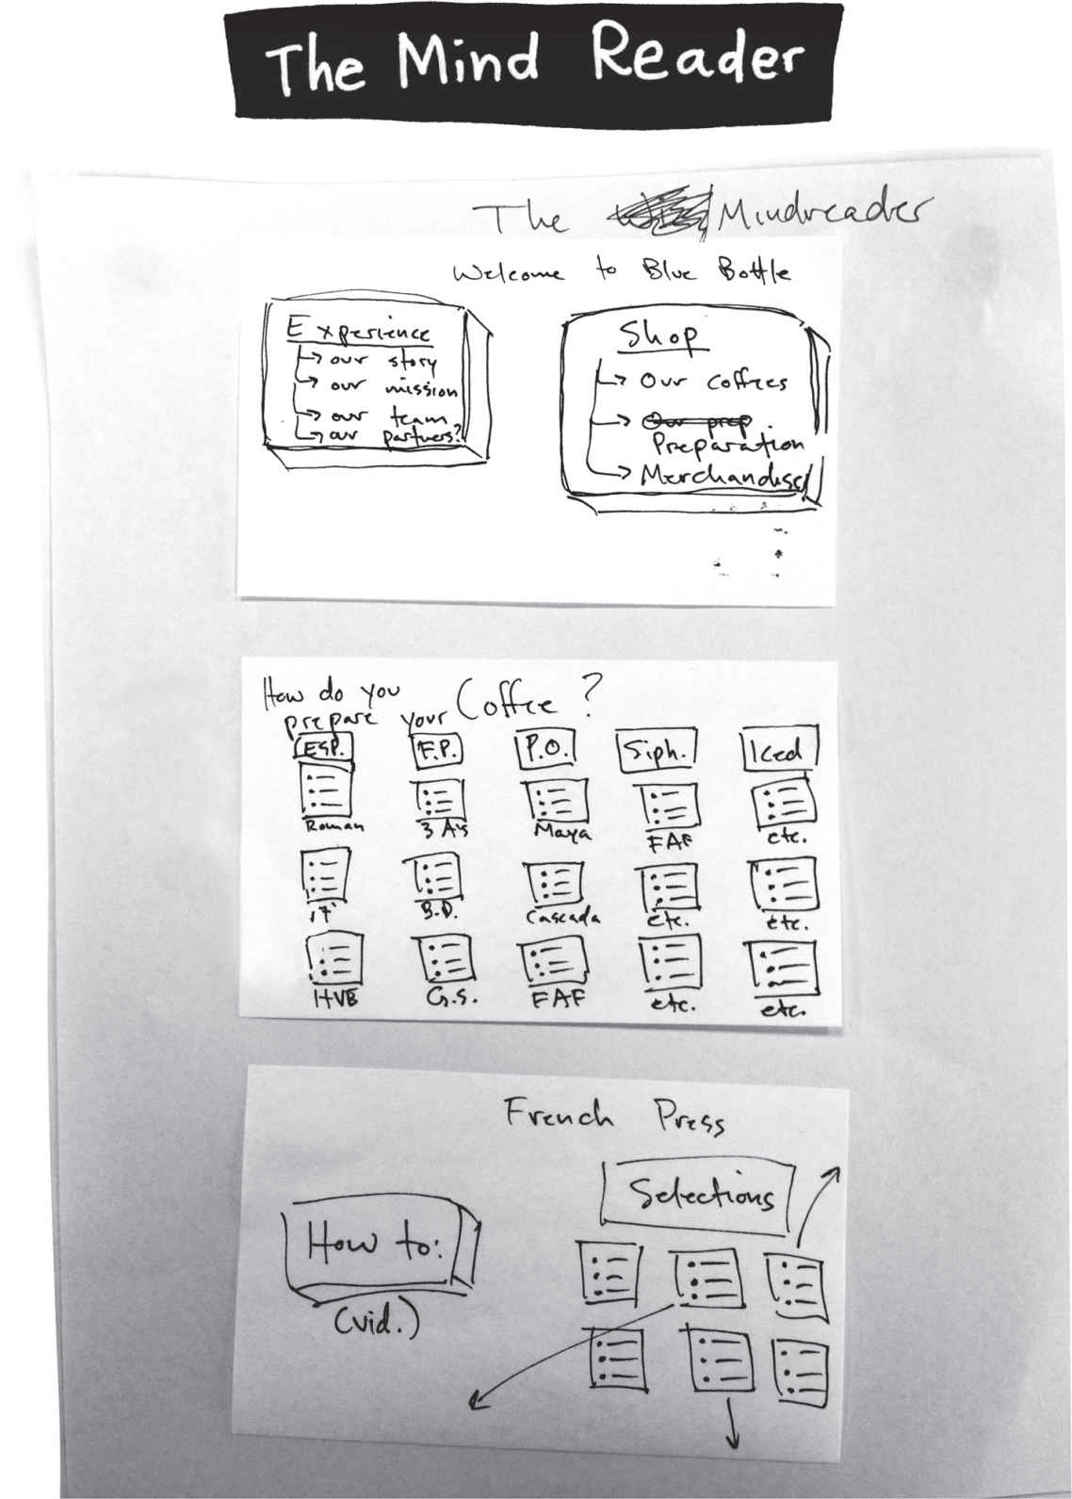 The Mind Reader
The Mindreader
Welcome to Blue Bottle
Experience
our story
our mission
our team
our partners?
Shop
Our coffees
Our prep
Preparation
Merchandise
How do you
prepare your Coffee?
ESP. F.P. P.O. Siph. Iced
Roman 3 A's Maya FAF etc.
17' B.D. Cascada etc. etc.
HVB G.S. FAF etc. etc.
French Press
Selections
How to:
(vid.)